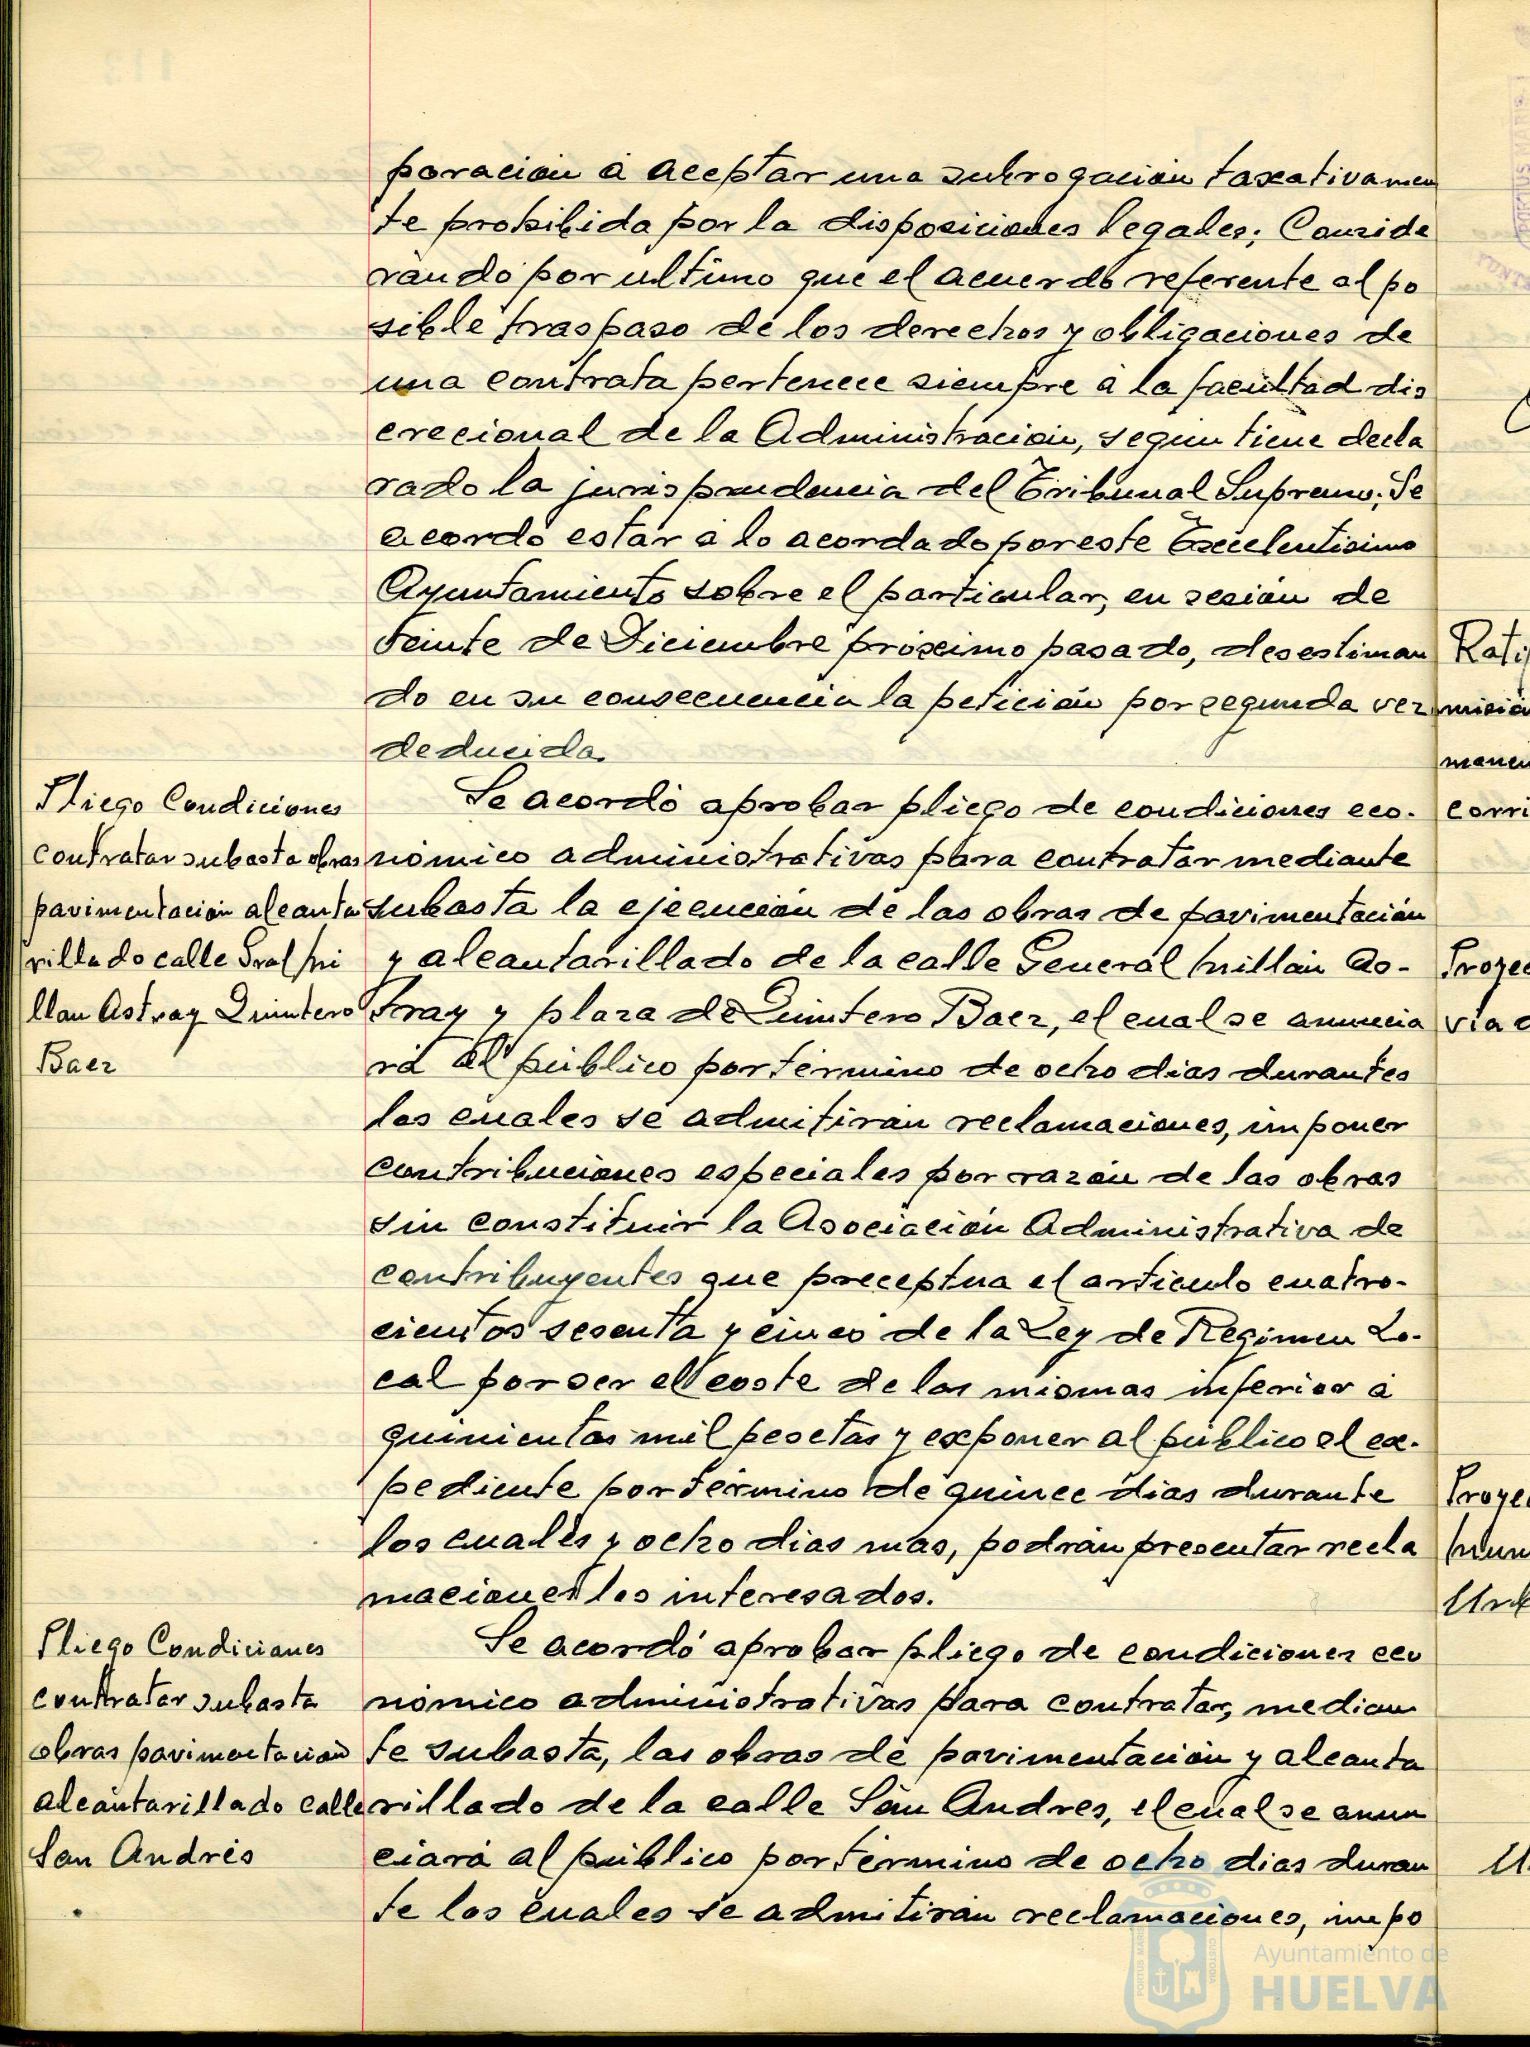 poración á aceptar una subrogación taxativamen
te prohibida por la disposiciones legales; Conside
rando por ultimo que el acuerdo referente al po
sible traspaso de los derechos y obligaciones de
una contrata pertenece siempre á la facultad dis
crecional de la Administración, segun tiene decla
rado la jurisprudencia del Tribunal Supremo; Se
acordó estar á lo acordado por este Excelentisimo
Ayuntamiento sobre el particular, en sesión de
veinte de Diciembre próximo pasado, desestiman
do en su consecuencia la petición por segunda vez
deducida.
Pliego Condiciones
contratar subasta obras
pavimentación alcanta
rillado calle Gral Mi
llan Astray Quintero
Baez
Se acordó aprobar pliego de condiciones eco-
nómico administrativas para contratar mediante
subasta la ejecución de las obras de pavimentación
y alcantarillado de la calle General Millán As-
tray y plaza de Quintero Baez, el cual se anuncia
rá al público por término de ocho dias durantes
los cuales se admitirán reclamaciones, imponer
contribuciones especiales por razón de las obras
sin constituir la Asociación Administrativa de
contribuyentes que preceptua el articulo cuatro-
cientos sesenta y cinco de la Ley de Regimen Lo-
cal por ser el coste de las mismas inferior á
quinientas mil pesetas y exponer al público el ex-
pediente por término de quince dias durante
los cuales y ocho dias mas, podrán presentar recla
maciones los interesados.
Pliego Condiciones
contratar subasta
obras pavimentación
alcantarillado calle
San Andrés
Se acordó aprobar pliego de condiciones eco
nómico administrativas para contratar, median
te subasta, las obras de pavimentación y alcanta
rillado de la calle San Andres, el cual se anun
ciará al público por término de ocho dias duran
te los cuales se admitirán reclamaciones, impo
Ayuntamiento de
HUELVA